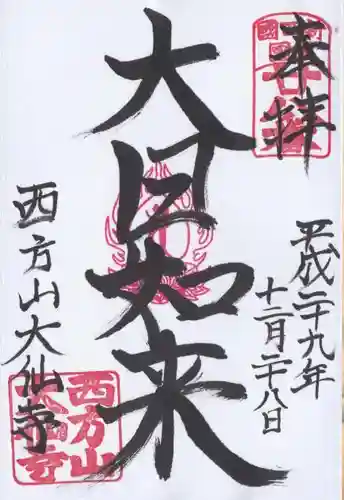 奉拝
平成二十九年
十二月二十八日
大日如来
西方山大仙寺
西方山
大仙寺